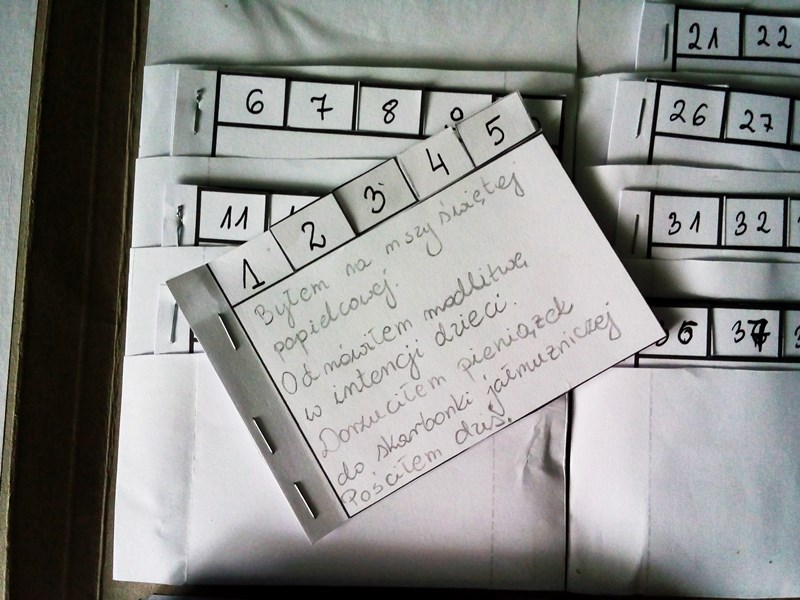 21 22
6 7 8 9
26 27
1 2 3 4 5
11
31 32
36 37
Byłem na mszy świętej
popielcowej.
Odmówiłem modlitwę
w intencji dzieci.
Dorzuciłem pieniążek
do skarbonki jałmużniczej
Pościłem dziś.